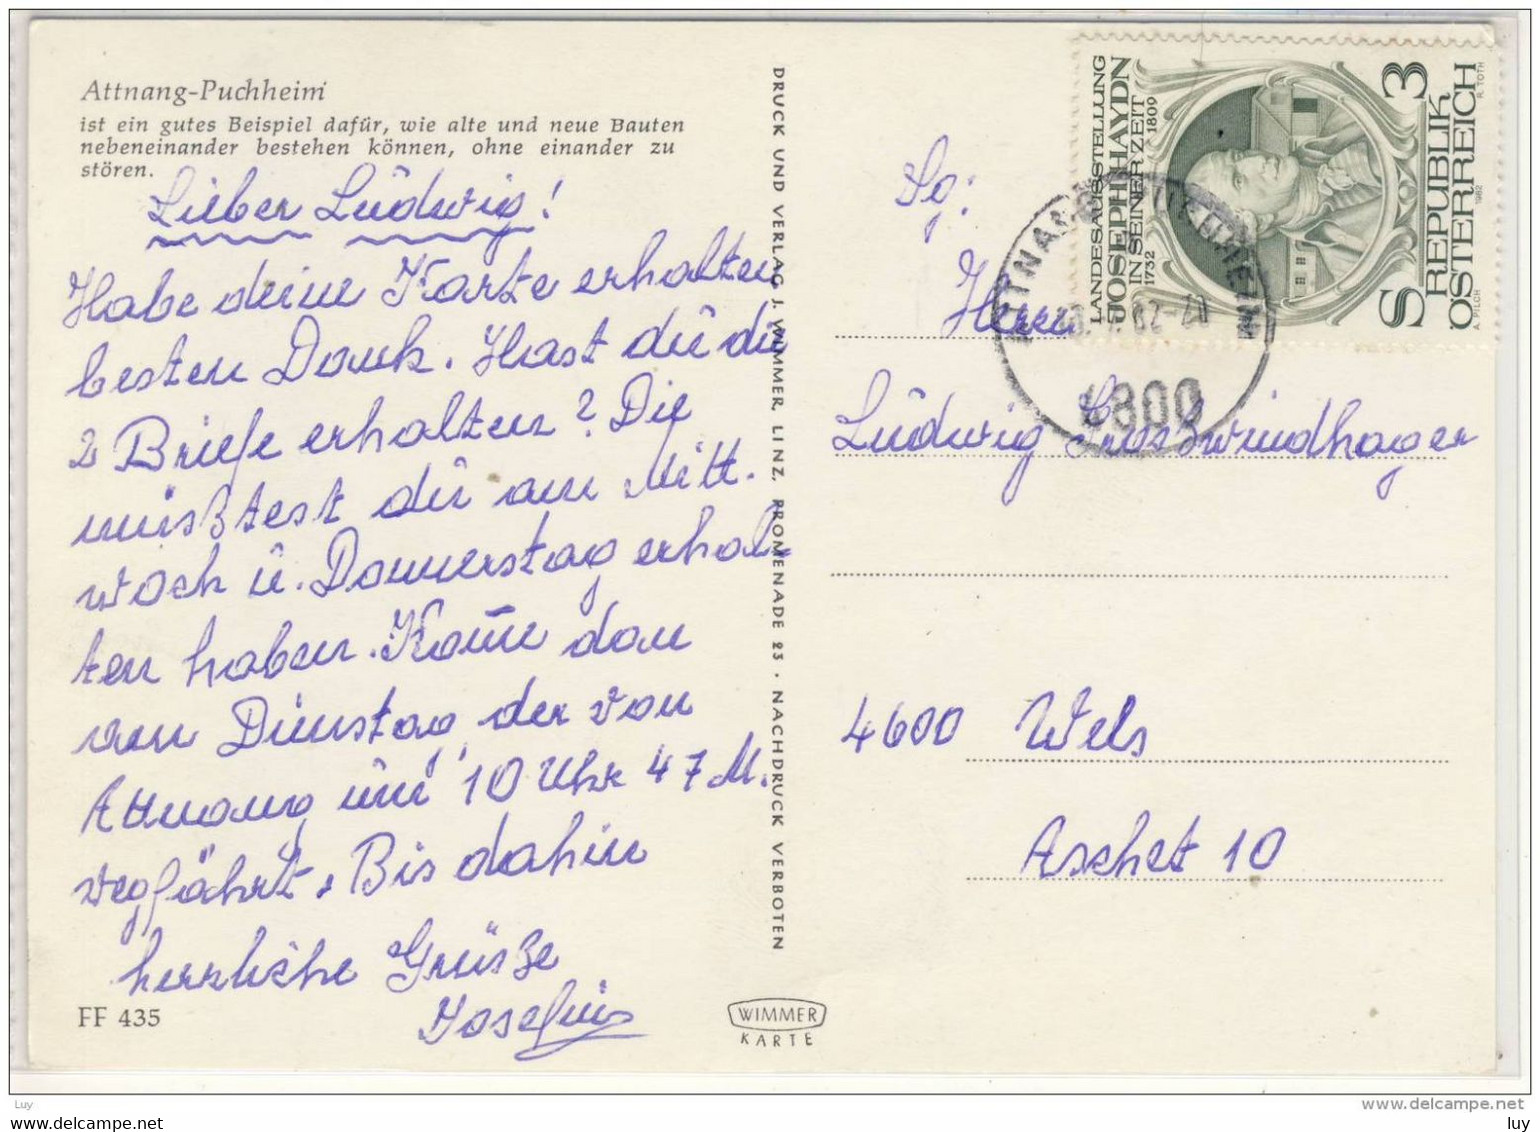 Attnang-Puchheim
ist ein gutes Beispiel dafür, wie alte und neue Bauten
nebeneinander bestehen können, ohne einander zu
stören.
Lieber Ludwig!
Habe deine Karte erhalten
besten Dank. Hast du die
2 Briefe erhalten? Die
müßtest du am Mitt-
woch u. Donnerstag erhal-
ten haben. Komm dan
am Dienstag der von
Attnang um 10 Uhr 47 M.
wegfährt. Bis dahin
herzliche Grüße
Josefine
FF 435
DRUCK UND VERLAG J. WIMMER, LINZ, PROMENADE 23 · NACHDRUCK VERBOTEN
WIMMER
KARTE
LANDESAUSSTELLUNG
JOSEPH HAYDN
IN SEINER ZEIT
1732 1809
S 3
REPUBLIK
ÖSTERREICH
A. PILCH 1982 R. TOTH
4800
Sg:
Herrn
Ludwig
4600 Wels
Aschet 10
Luy
www.delcampe.net
www.delcampe.net
luy